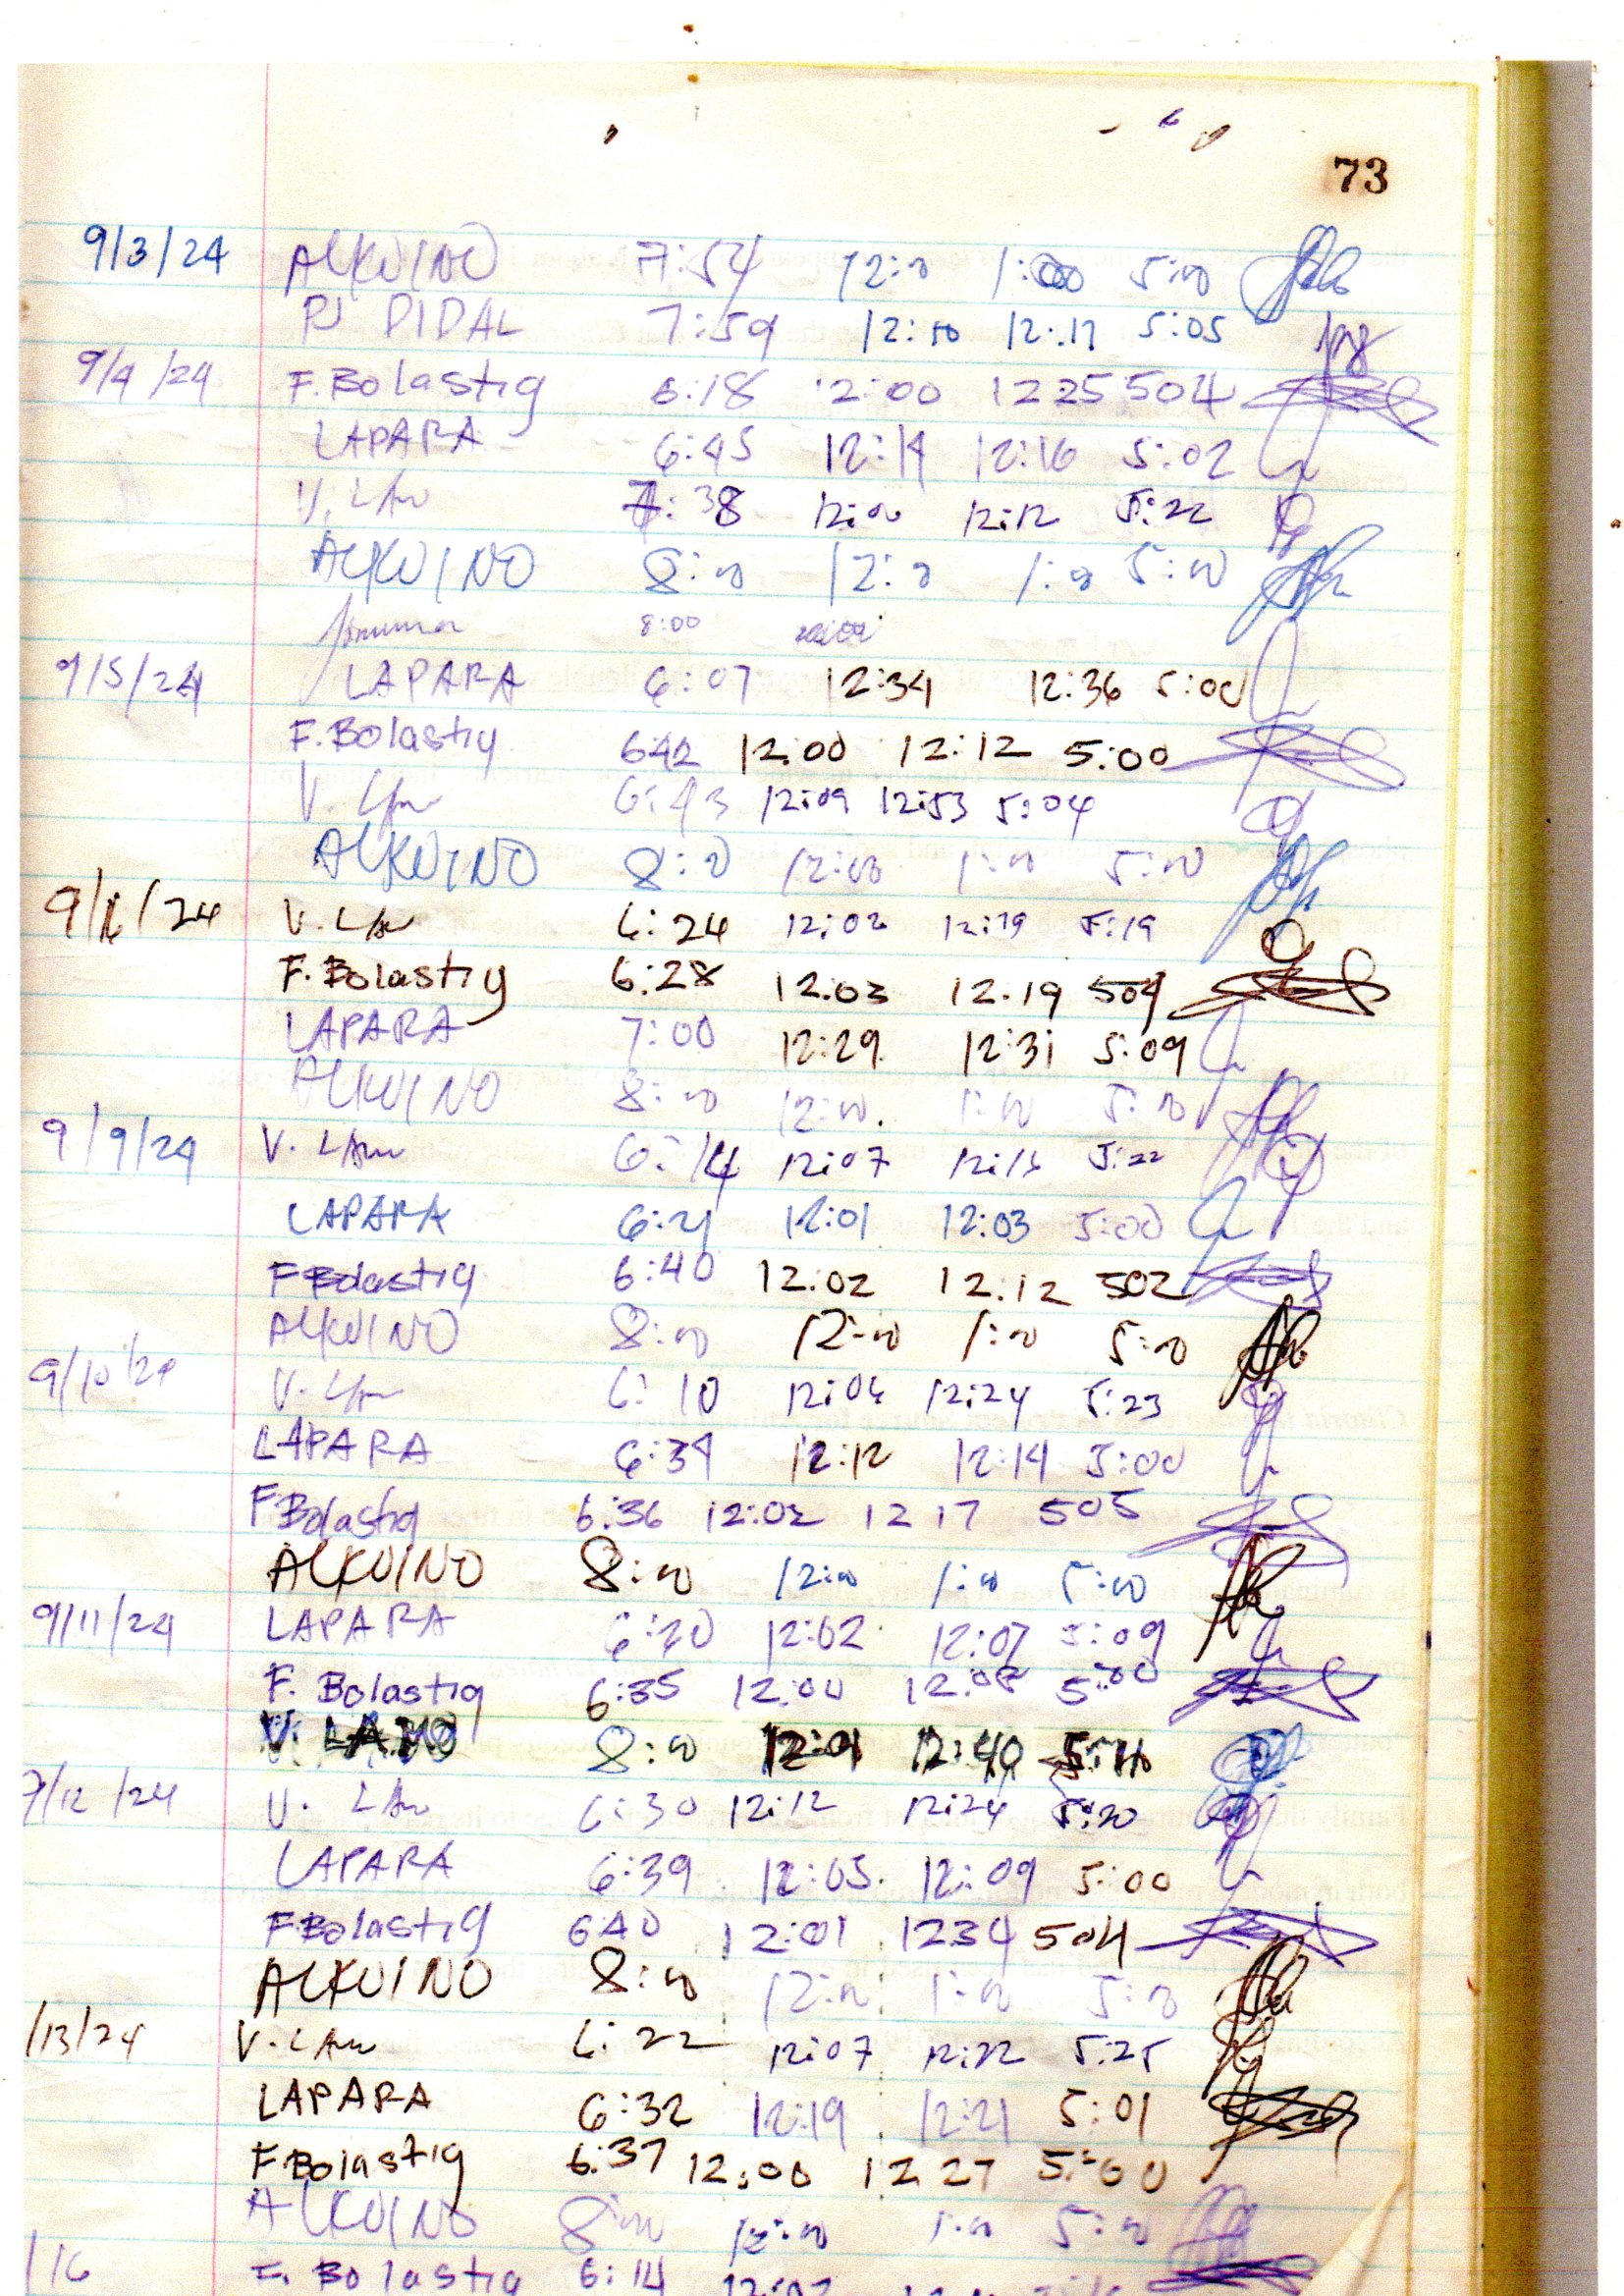 73
9/3/24 ALKUINO 7:54 12:00 1:00 5:00
PJ DIDAL 7:59 12:10 12:17 5:05
9/4/24 F. Bolastig 6:18 12:00 1225 504
LAPARA 6:45 12:14 12:16 5:02
V. LAu 7:38 12:00 12:12 5:22
ALKUINO 8:00 12:00 1:00 5:00
8:00
9/5/24 LAPARA 6:07 12:34 12:36 5:00
F. Bolastig 642 12.00 12:12 5:00
V. 6:43 12:09 12:53 5:04
ALKUINO 8:00 12:00 1:00 5:00
9/6/24 V. LAu 6:24 12:02 12:19 5:19
F. Bolastig 6:28 12.03 12.19 504
LAPARA 7:00 12:29 12:31 5:09
ALKUINO 8:00 12:00 1:00 5:00
9/9/24 V. LAu 6:14 12:07 12:13 5:22
LAPARA 6:21 12:01 12:03 5:00
F Bolastig 6:40 12.02 12.12 502
ALKUINO 8:00 12:00 1:00 5:00
9/10/24 V. 6:10 12:06 12:24 5:23
LAPARA 6:34 12:12 12:14 5:00
F Bolastig 6:36 12:02 12 17 505
ALKUINO 8:00 12:00 1:00 5:00
9/11/24 LAPARA 6:20 12:02 12:07 5:09
F. Bolastig 6:35 12:00 12:08 5:00
V. 8:00 12:01 12:40 5:11
9/12/24 V. LAu 6:30 12:12 12:24 5:20
LAPARA 6:39 12:05 12:09 5:00
F Bolastig 640 12:01 1234 504
ALKUINO 8:00 12:00 1:00 5:00
/13/24 V. LAu 6:22 12:07 12:22 5:25
LAPARA 6:32 12:19 12:21 5:01
F Bolastig 6:37 12:00 12 27 5:00
ALKUINO 8:00 12:00 1:00 5:00
/16 F. Bolastig 6:14